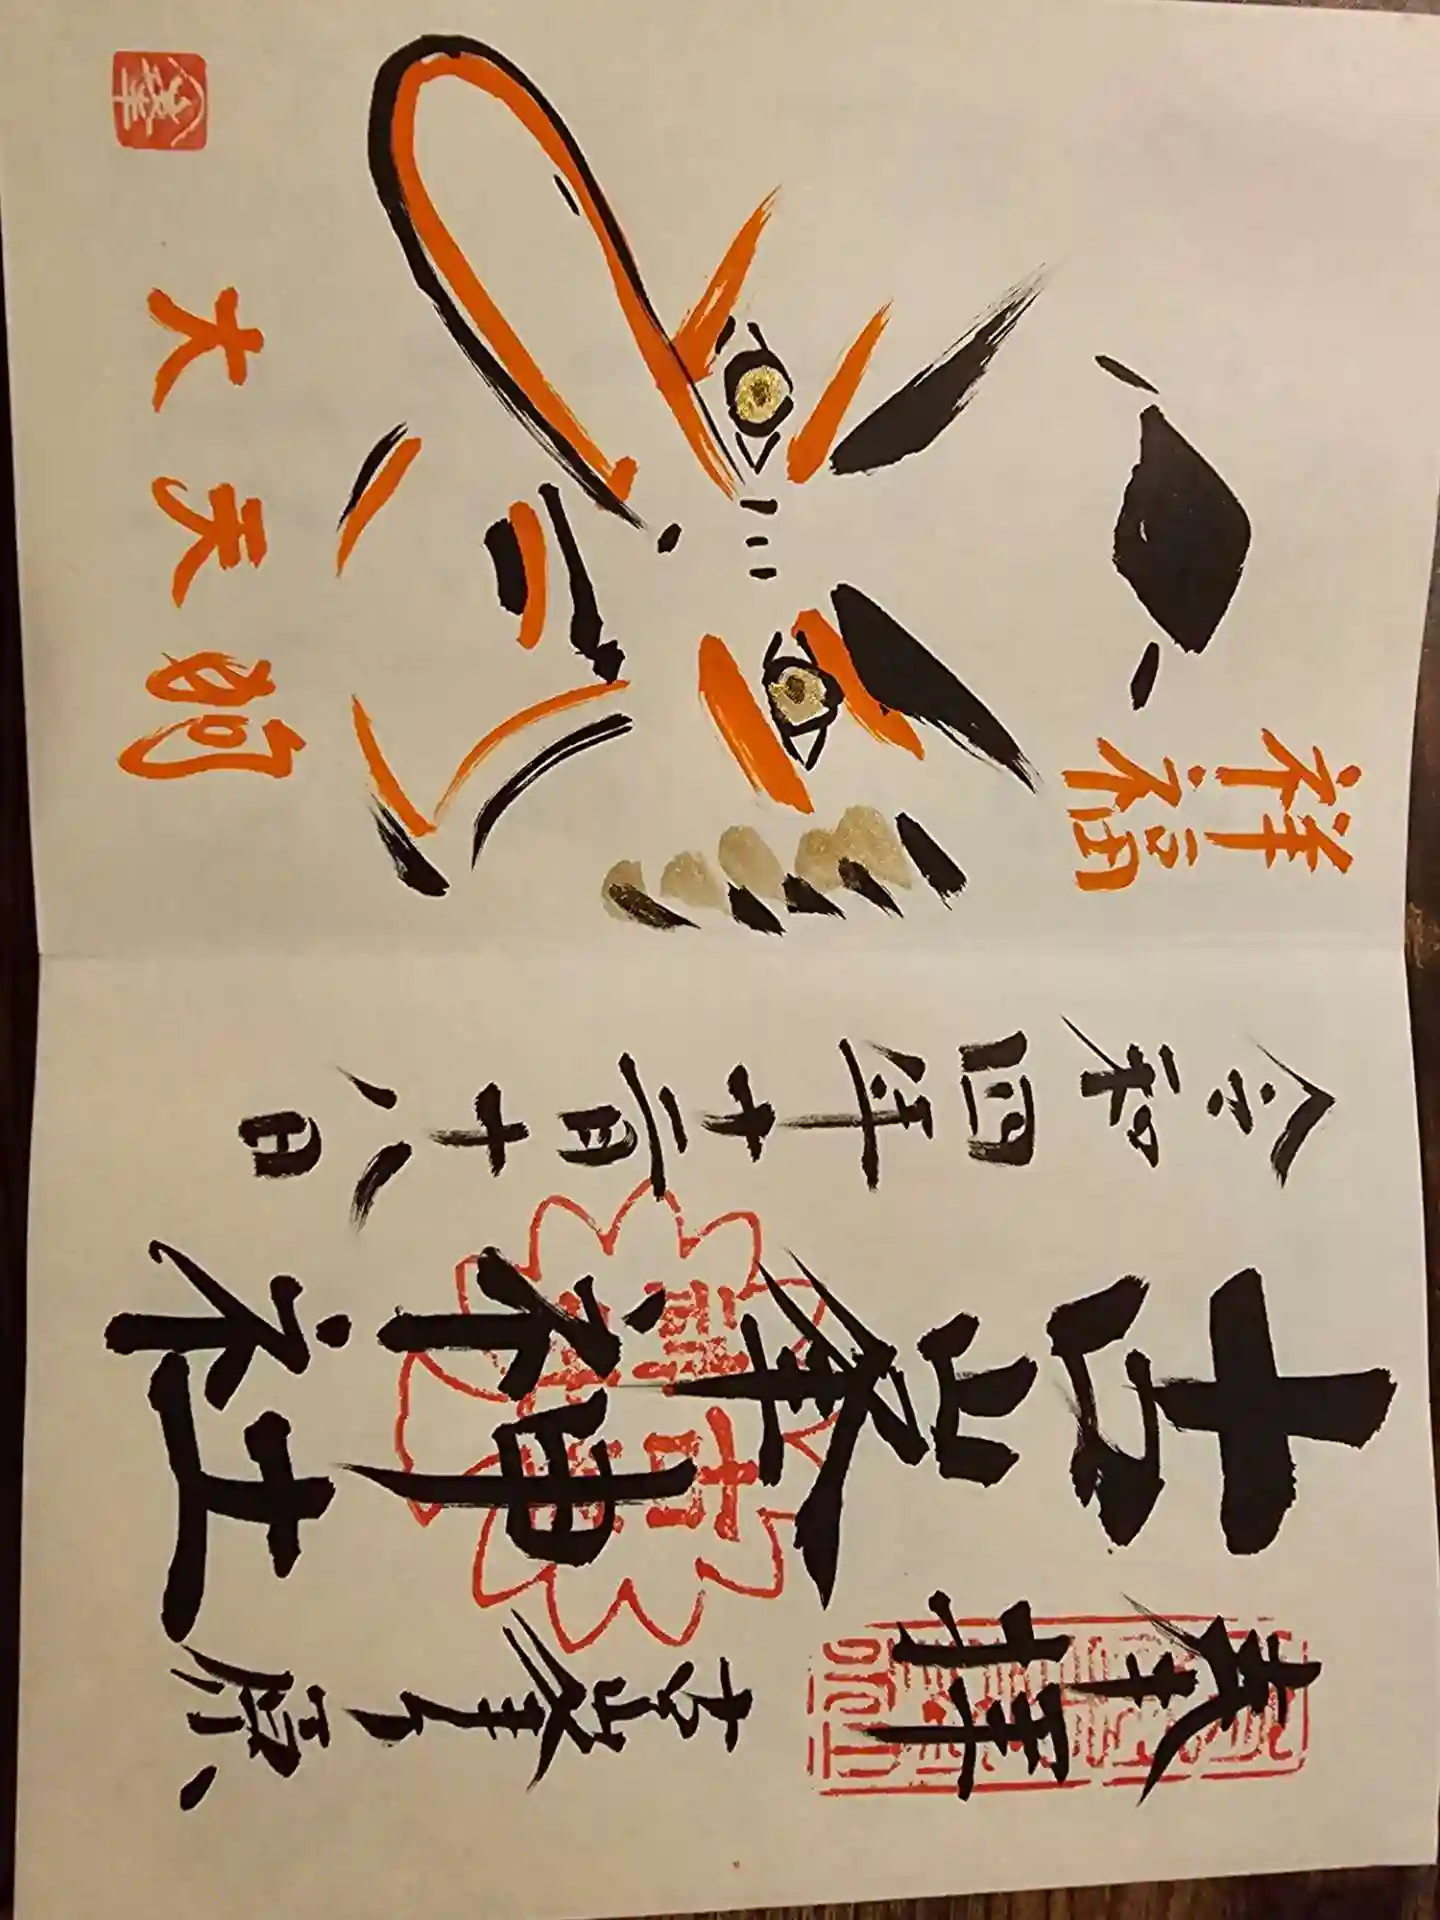 奉拝
古峯ヶ原
古峯神社
令和四年十二月十八日
祥福
大天狗